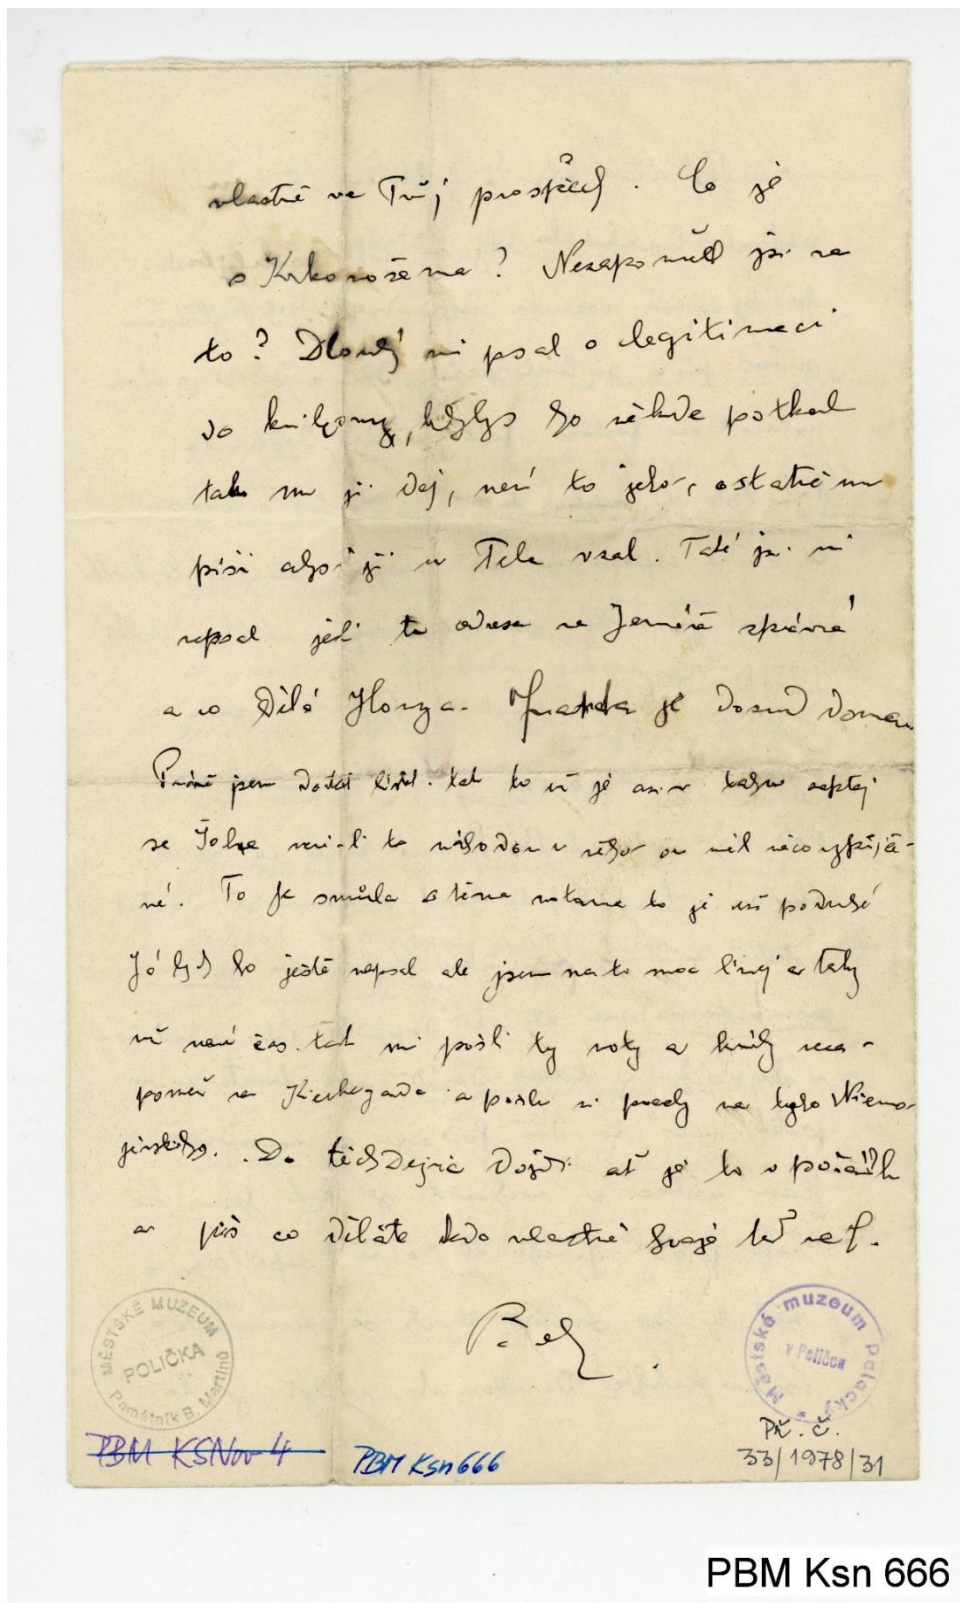 vlastně ve Tvůj prospěch. Co je
s Krkonošema? Nezapomněl jsi na
to? Dlouhý mi psal o legitimaci
do knihovny, kdybys ho někde potkal
tak mu ji dej, není to jeho, ostatně mu
píši aby si ji u Tebe vzal. Také jsi mi
nepsal jesli ta adresa na je správná
a co dělá Honza. je dosud doma
Právě jsem dostal lístek. tak to už je asi v zeptej
se není-li to náhodou u něho on měl něco vypůjče-
né. To je smůla s těma notama to je už podruhé
Já bych ho ještě nepsal ale jsem na to moc línej a taky
už není čas. tak mi pošli ty noty a knihy neza-
pomeň na a pošlu ti peníze na toho Niemo-
jevského. Do těch Dejvic dojdi ať je to v pořádk
a piš co děláte kdo vlastně hraje teď na f.
MĚSTSKÉ MUZEUM
POLIČKA
Památník B. Martinů
Městské muzeum Palackých
v Poličce
Př. č.
33/1978/31
PBM KSNov 4
PBM Ksn 666
PBM Ksn 666